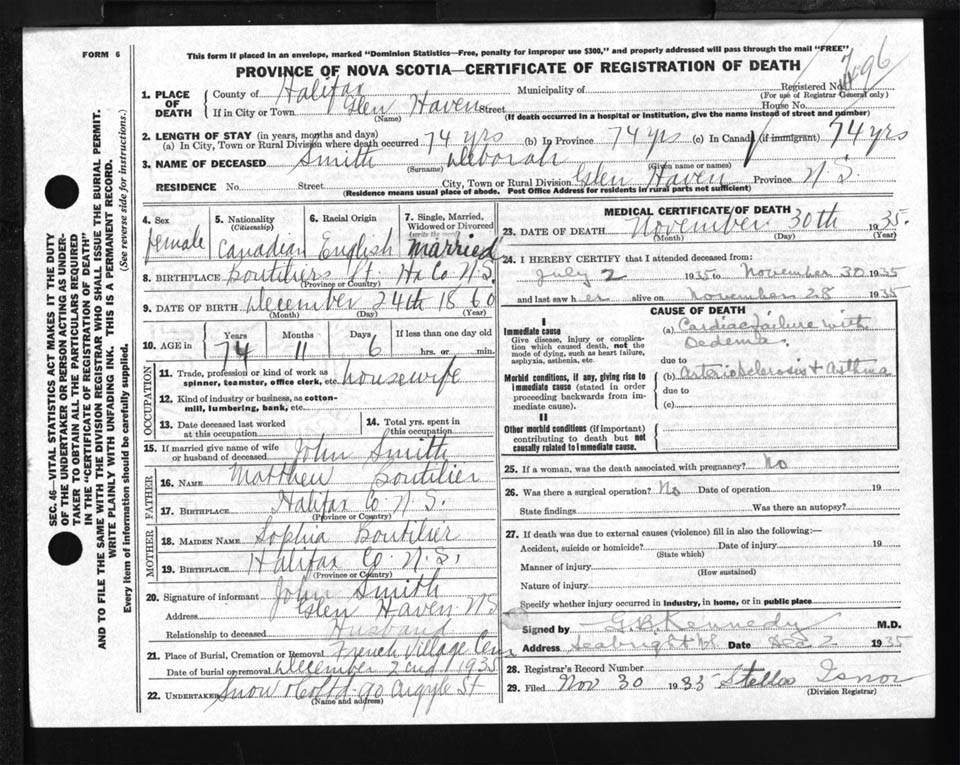 FORM 6
This form if placed in an envelope, marked "Dominion Statistics—Free, penalty for improper use $300," and properly addressed will pass through the mail "FREE"
PROVINCE OF NOVA SCOTIA—CERTIFICATE OF REGISTRATION OF DEATH
1. PLACE OF DEATH County of Halifax Municipality of Registered No.
(For use of Registrar General only)
If in City or Town Glen Haven Street House No.
(Name) (If death occurred in a hospital or institution, give the name instead of street and number)
2. LENGTH OF STAY (in years, months and days)
(a) In City, Town or Rural Division where death occurred 74 yrs (b) In Province 74 yrs (c) In Canada (if immigrant) 74 yrs
3. NAME OF DECEASED Smith Deborah
(Surname) (Given name or names)
RESIDENCE No. Street City, Town or Rural Division Glen Haven Province N.S.
(Residence means usual place of abode. Post Office Address for residents in rural parts not sufficient)
4. Sex female
5. Nationality (Citizenship) Canadian
6. Racial Origin English
7. Single, Married, Widowed or Divorced married
8. BIRTHPLACE Boutiliers Pt. Hx Co N.S.
(Province or Country)
9. DATE OF BIRTH December 24th 1860
(Month) (Day) (Year)
10. AGE in Years 74 Months 11 Days 6 If less than one day old hrs. or min.
OCCUPATION
11. Trade, profession or kind of work as spinner, teamster, office clerk, etc. housewife
12. Kind of industry or business, as cotton-mill, lumbering, bank, etc.
13. Date deceased last worked at this occupation
14. Total yrs. spent in this occupation
15. If married give name of wife or husband of deceased John Smith
FATHER
16. NAME Matthew Boutilier
17. BIRTHPLACE Halifax Co N.S.
(Province or Country)
MOTHER
18. MAIDEN NAME Sophia Boutilier
19. BIRTHPLACE Halifax Co. N.S,
(Province or Country)
20. Signature of informant John Smith
Address Glen Haven N.S
Relationship to deceased Husband
21. Place of Burial, Cremation or Removal French Village Cem
Date of burial or removal December 2nd 1935
22. UNDERTAKER Snow & Co Ltd 90 Argyle St
(Name and address)
MEDICAL CERTIFICATE OF DEATH
23. DATE OF DEATH November 30th 1935.
(Month) (Day) (Year)
24. I HEREBY CERTIFY that I attended deceased from:
July 2 1935 to November 30 1935
and last saw her alive on November 28 1935
CAUSE OF DEATH
I
Immediate cause
Give disease, injury or complication which caused death, not the mode of dying, such as heart failure, asphyxia, asthenia, etc.
(a) Cardiac failure with Oedema.
due to
Morbid conditions, if any, giving rise to immediate cause (stated in order proceeding backwards from immediate cause).
(b) Arteriosclerosis + Asthma
due to
(c)
II
Other morbid conditions (if important) contributing to death but not causally related to immediate cause.
25. If a woman, was the death associated with pregnancy? No
26. Was there a surgical operation? No Date of operation 19
State findings Was there an autopsy?
27. If death was due to external causes (violence) fill in also the following:—
Accident, suicide or homicide? Date of injury 19
(State which)
Manner of injury
(How sustained)
Nature of injury
Specify whether injury occurred in industry, in home, or in public place
Signed by G.B. Kennedy M.D.
Address Seabright Date Dec 2 1935
28. Registrar's Record Number
29. Filed Nov 30 1933 Stella Isnor
(Division Registrar)
SEC. 46—VITAL STATISTICS ACT MAKES IT THE DUTY
OF THE UNDERTAKER OR PERSON ACTING AS UNDER-
TAKER TO OBTAIN ALL THE PARTICULARS REQUIRED
IN THE "CERTIFICATE OF REGISTRATION OF DEATH"
AND TO FILE THE SAME WITH THE DIVISION REGISTRAR WHO SHALL ISSUE THE BURIAL PERMIT.
WRITE PLAINLY WITH UNFADING INK. THIS IS A PERMANENT RECORD.
Every item of information should be carefully supplied. (See reverse side for instructions.)